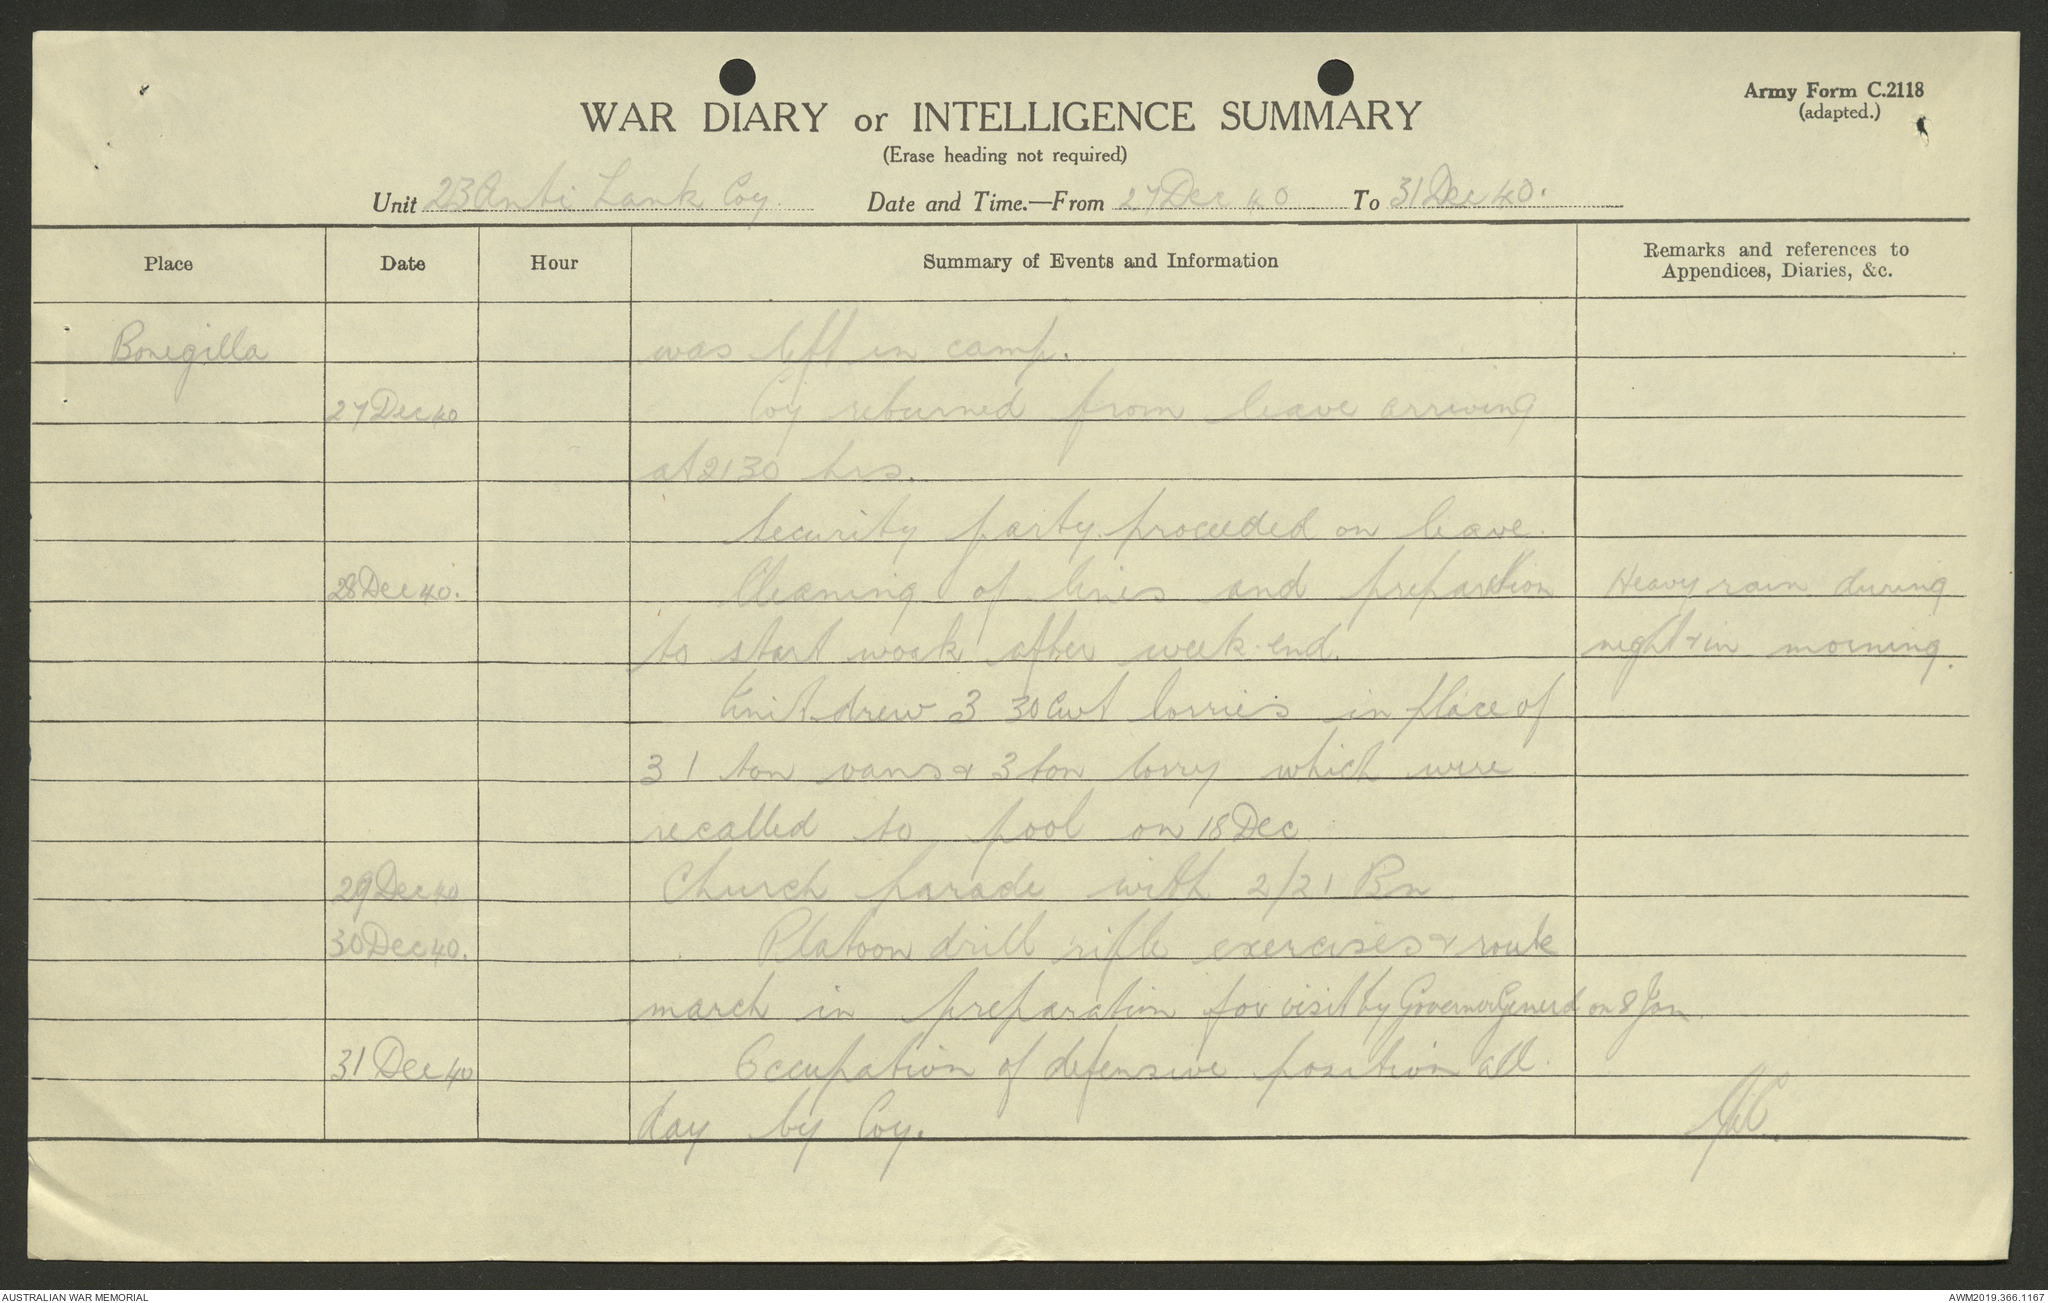 Army Form C.2118
(adapted.)
WAR DIARY or INTELLIGENCE SUMMARY
(Erase heading not required)
Unit 23 Anti Tank Coy. Date and Time.—From 27 Dec 40 To 31 Dec 40.
Place Date Hour Summary of Events and Information Remarks and references to
Appendices, Diaries, &c.
Bonegilla was left in camp.
27 Dec 40 Coy returned from leave arriving
at 2130 hrs.
Security party proceeded on leave.
28 Dec 40. Cleaning of lines and preparation Heavy rain during
to start work after week-end. night & in morning.
Unit drew 3 30 cwt lorries in place of
3 1 ton vans & 3 ton lorry which were
recalled to pool on 18 Dec
29 Dec 40 Church parade with 2/21 Bn
30 Dec 40. Platoon drill rifle exercises & route
march in preparation for visit by Governor General on 8 Jan.
31 Dec 40 Occupation of defensive position all
day by Coy.
AUSTRALIAN WAR MEMORIAL
AWM2019.366.1167